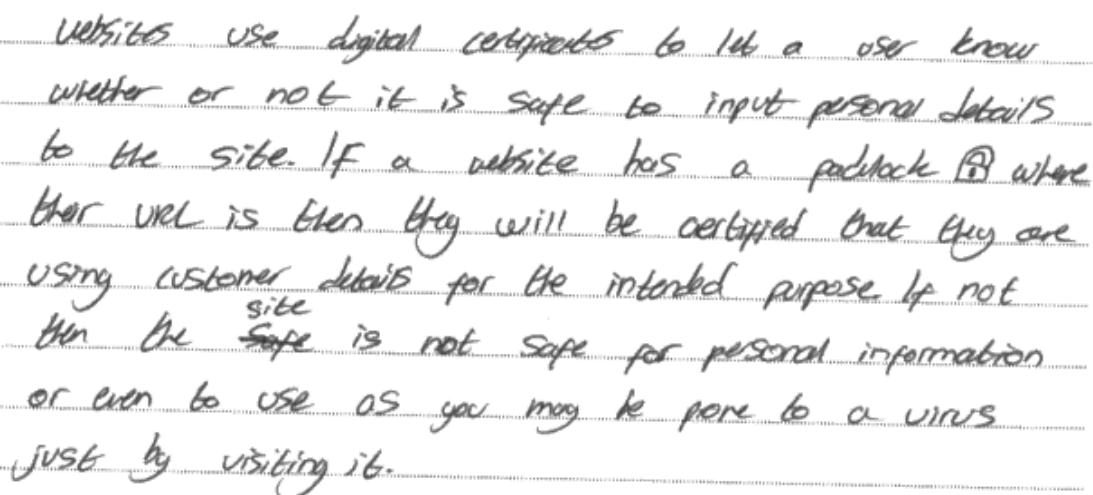 websites use digital certificates to let a user know
whether or not it is safe to input personal details
to the site. If a website has a padlock where
their URL is then they will be certified that they are
using customer details for the intended purpose If not
then the ~~safe~~ site is not safe for personal information
or even to use as you may be pone to a virus
just by visiting it.